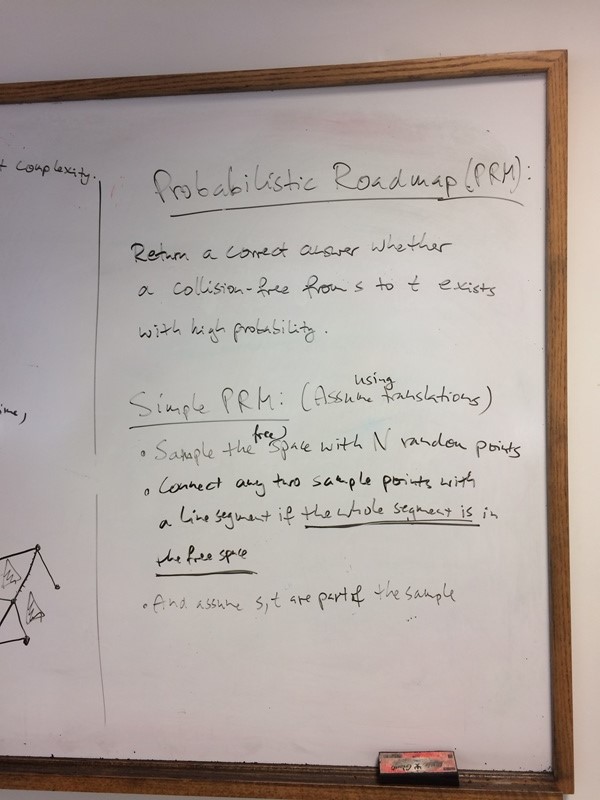 t complexity.
Probabilistic Roadmap (PRM):
Return a correct answer whether
a collision-free from s to t exists
with high probability.
using
Simple PRM: (Assume translations)
free)
• Sample the space with N random points
• Connect any two sample points with
a line segment if the whole segment is in
the free space
• And assume s,t are part of the sample
...